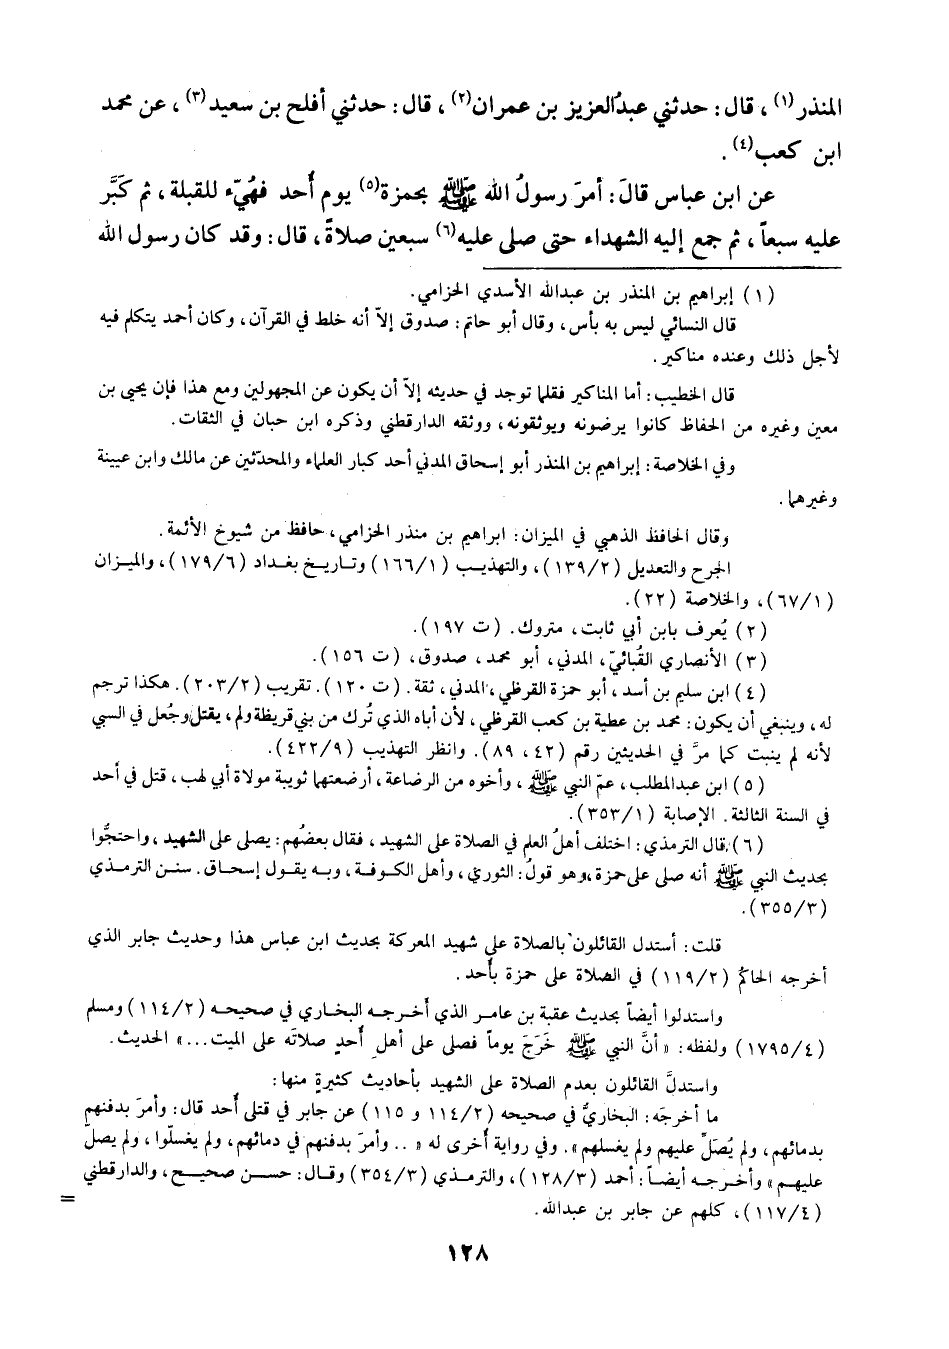 المنذر(١)، قال: حدثني عبدُالعزيز بن عمران(٢)، قال: حدثني أفلح بن سعيد(٣)، عن محمد
ابن كعب(٤).
عن ابن عباس قالَ: أمرَ رسولُ الله ﷺ بحمزة(٥) يوم أُحد فهُيّء للقبلة، ثم كَبَّر
عليه سبعاً، ثم جمع إليه الشهداء حتى صلى عليه(٦) سبعين صلاةً، قال: وقد كان رسول الله
(١) إبراهيم بن المنذر بن عبدالله الأسدي الحزامي.
قال النسائي ليس به بأس، وقال أبو حاتم: صدوق إلاّ أنه خلط في القرآن، وكان أحمد يتكلم فيه
لأجل ذلك وعنده مناكير.
قال الخطيب: أما المناكير فقلما توجد في حديثه إلاّ أن يكون عن المجهولين ومع هذا فإن يحيى بن
معين وغيره من الحفاظ كانوا يرضونه ويوثقونه، ووثقه الدارقطني وذكره ابن حبان في الثقات.
وفي الخلاصة: إبراهيم بن المنذر أبو إسحاق المدني أحد كبار العلماء والمحدّثين عن مالك وابن عيينة
وغيرهما.
وقال الحافظ الذهبي في الميزان: ابراهيم بن منذر الحزامي، حافظ من شيوخ الأئمة.
الجرح والتعديل (١٣٩/٢)، والتهذيب (١٦٦/١) وتاريخ بغداد (١٧٩/٦)، والميزان
(٦٧/١)، والخلاصة (٢٢).
(٢) يُعرف بابن أبي ثابت، متروك. (ت ١٩٧).
(٣) الأنصاري القُبائيّ، المدني، أبو محمد، صدوق، (ت ١٥٦).
(٤) ابن سليم بن أسد، أبو حمزة القرظي، المدني، ثقة. (ت ١٢٠). تقريب (٢٠٣/٢). هكذا ترجم
له، وينبغي أن يكون: محمد بن عطية بن كعب القرظي، لأن أباه الذي تُرك من بني قريظة ولم، يقتل وجُعل في السبي
لأنه لم ينبت كما مرَّ في الحديثين رقم (٤٢، ٨٩). وانظر التهذيب (٤٢٢/٩).
(٥) ابن عبدالمطلب، عمّ النبي ﷺ، وأخوه من الرضاعة، أرضعتها ثويبة مولاة أبي لهب، قتل في أحد
في السنة الثالثة. الإصابة (٣٥٣/١).
(٦) قال الترمذي: اختلف أهلُ العلم في الصلاة على الشهيد، فقال بعضُهم: يصلى على الشهيد، واحتجُّوا
بحديث النبي ﷺ أنه صلى على حمزة، وهو قولُ: الثوري، وأهل الكوفة، وبه يقول إسحاق. سنن الترمذي
(٣٥٥/٣).
قلت: أستدل القائلون بالصلاة على شهيد المعركة بحديث ابن عباس هذا وحديث جابر الذي
أخرجه الحاكمُ (١١٩/٢) في الصلاة على حمزة بأُحد.
واستدلوا أيضاً بحديث عقبة بن عامر الذي أخرجه البخاري في صحيحه (١١٤/٢) ومسلم
(١٧٩٥/٤) ولفظه: «أنَّ النبي ﷺ خَرَجَ يوماً فصلى على أهلِ أُحدٍ صلاتَه على الميت...» الحديث.
واستدلَّ القائلون بعدم الصلاة على الشهيد بأحاديث كثيرةٍ منها:
ما أخرجَه: البخاريُّ في صحيحه (١١٤/٢ و ١١٥) عن جابر في قتلى أُحد قال: وأمرَ بدفنهم
بدمائهم، ولم يُصَلِّ عليهم ولم يغسلهم». وفي رواية أُخرى له «.. وأمرَ بدفنهم في دمائهم، ولم يغسلّوا، ولم يصلّ
عليهم» وأخرجه أيضاً: أحمد (١٢٨/٣)، والترمذي (٣٥٤/٣) وقال: حسن صحيح، والدارقطني
(١١٧/٤)، كلهم عن جابر بن عبدالله.
=
١٢٨